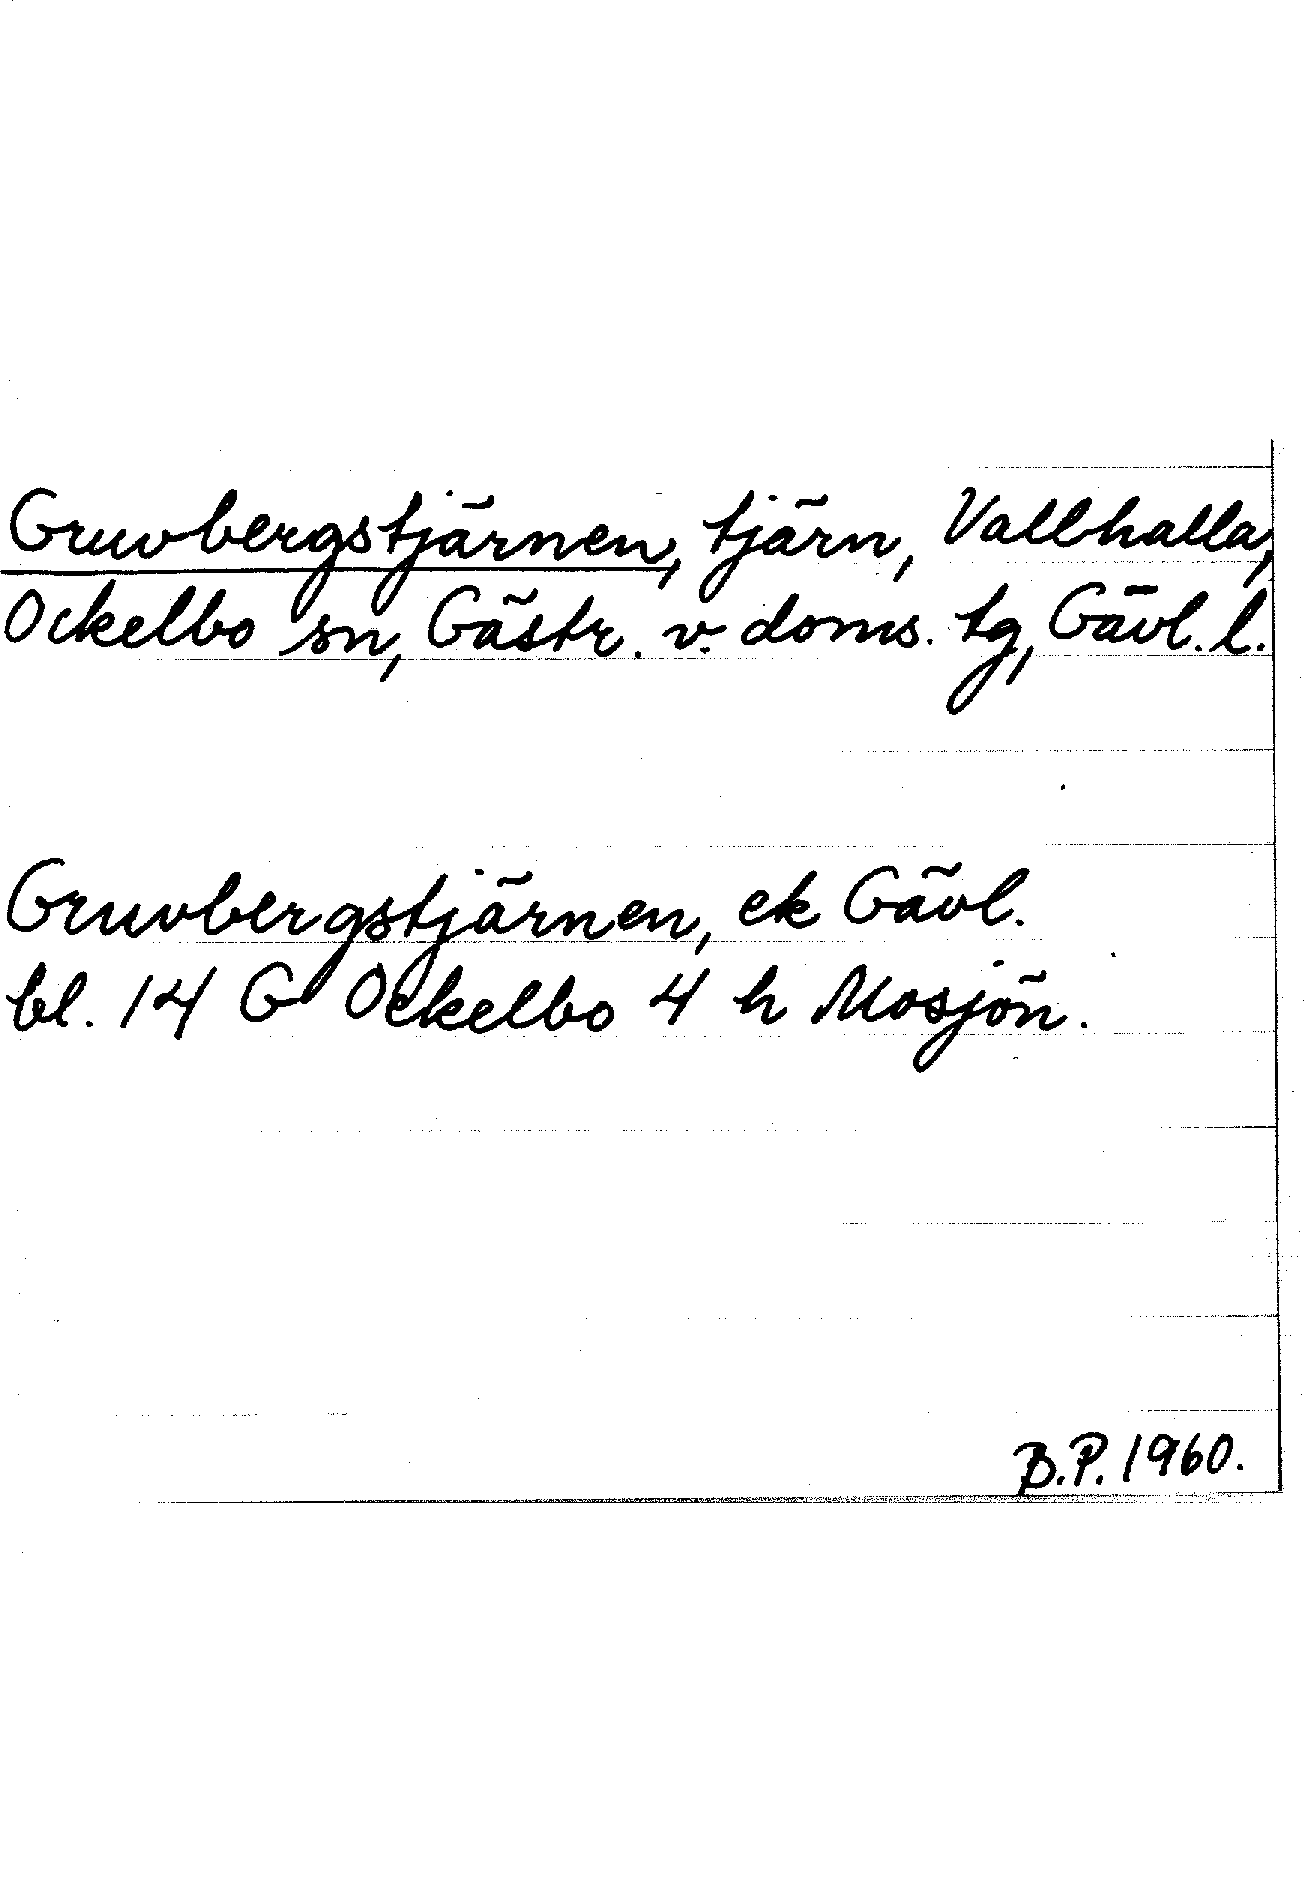 Gruvbergstjärnen, tjärn, Vallhalla,
Ockelbo sn, Gästr. v. doms. tg, Gävl. l.
Gruvbergstjärnen, ek Gävl.
bl. 14 G Ockelbo 4 h Mosjön.
B.P. 1960.